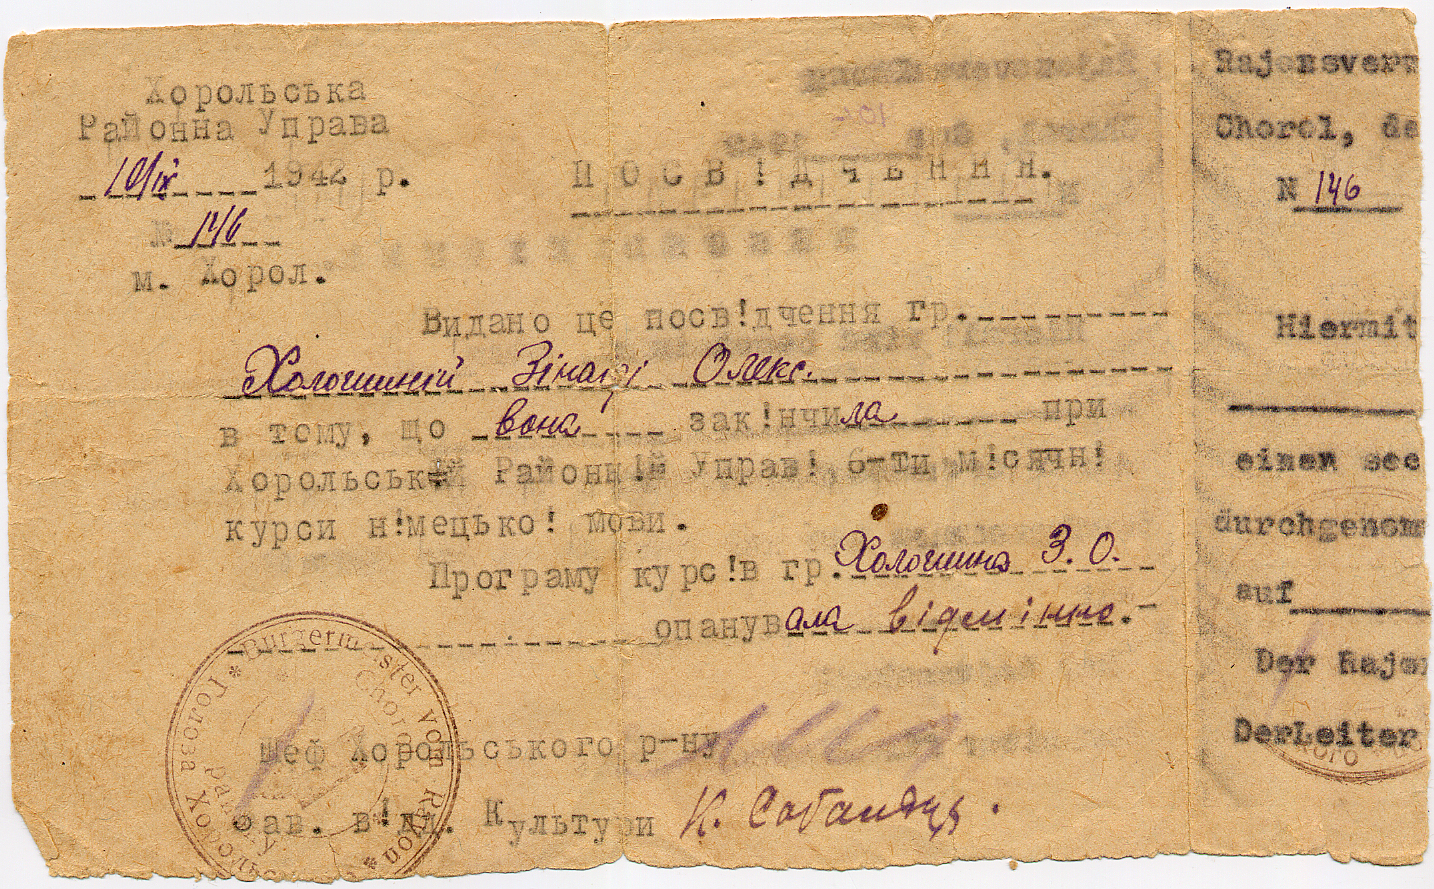 Хорольська
Районна Управа
10/IX 1942 р.
№ 146
м. Хорол.
ПОСВ!ДЧЕННЯ.
Видано це посв!дчення гр.
Холошиній Зінаїді Олекс.
в тому, що вона зак!нчила при
Хорольськ!й Районн!й Управ! 6-ти м!сячн!
курси н!мецько! мови.
Програму курс!в гр. Холошина З. О.
опанувала відмінно.-
Шеф Хорольського р-ну
Зав. в!дд. Культури
Burgermeister von Rayon
Chorol
Голова Хорол
Rajonsverw
Chorol, de
N 146
Hiermit
einen see
durchgenomm
auf
Der Rajon
DerLeiter